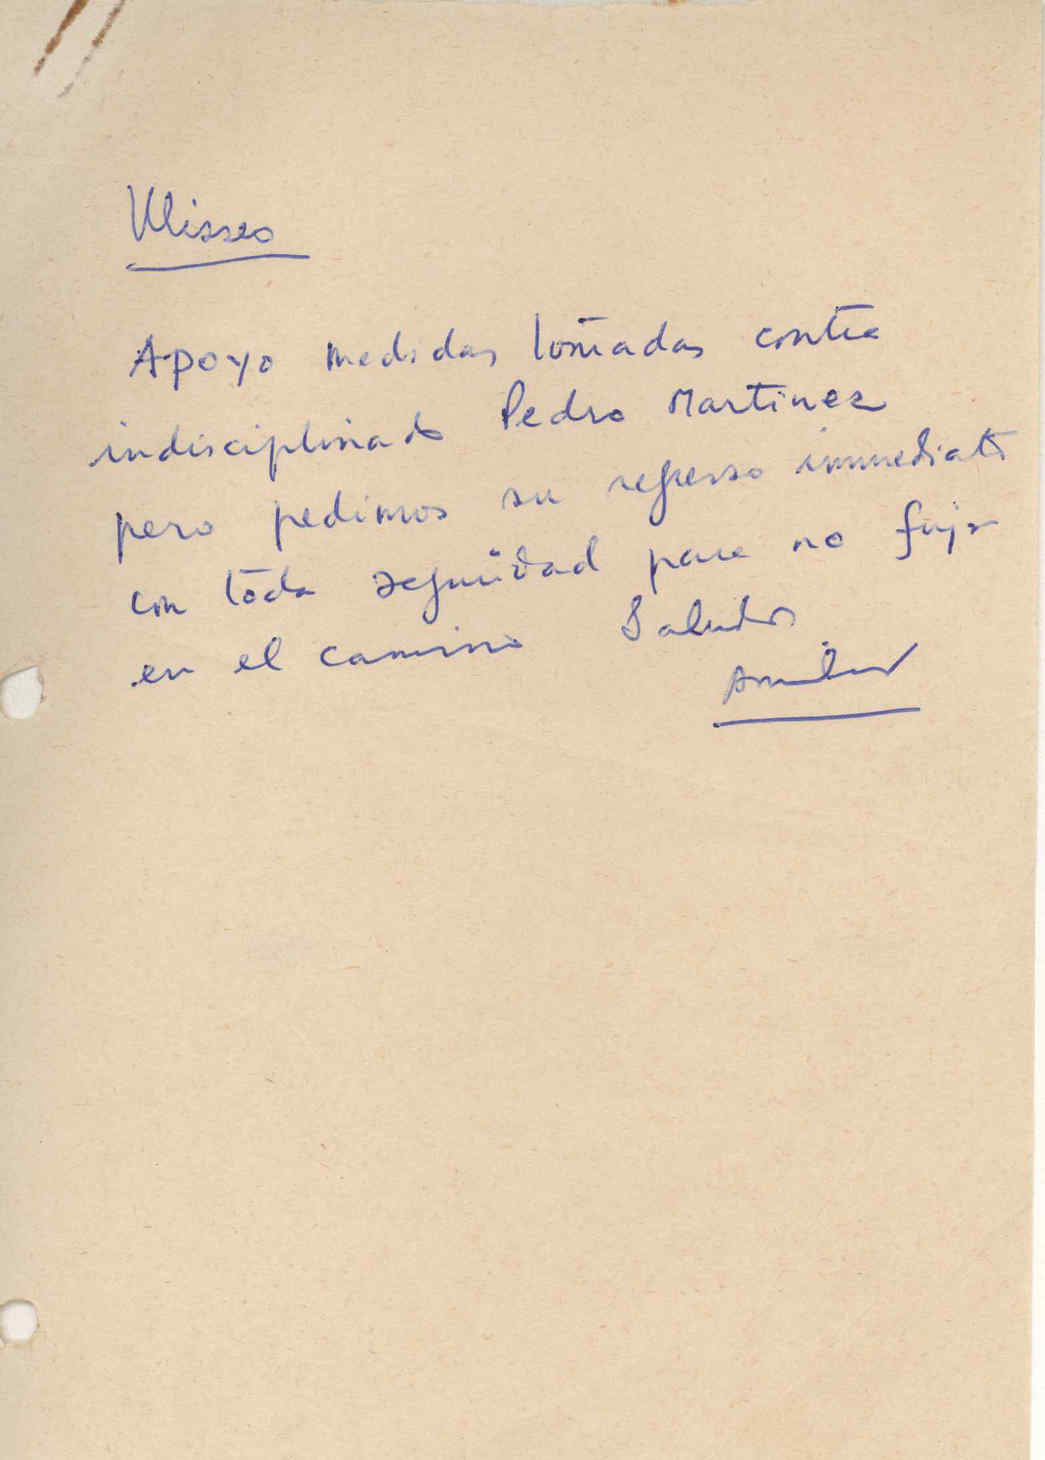 Ulisses
Apoyo medidas tomadas contra
indisciplinado Pedro Martinez
pero pedimos su regreso immediato
con toda seguridad para no fujir
en el camino Saludos